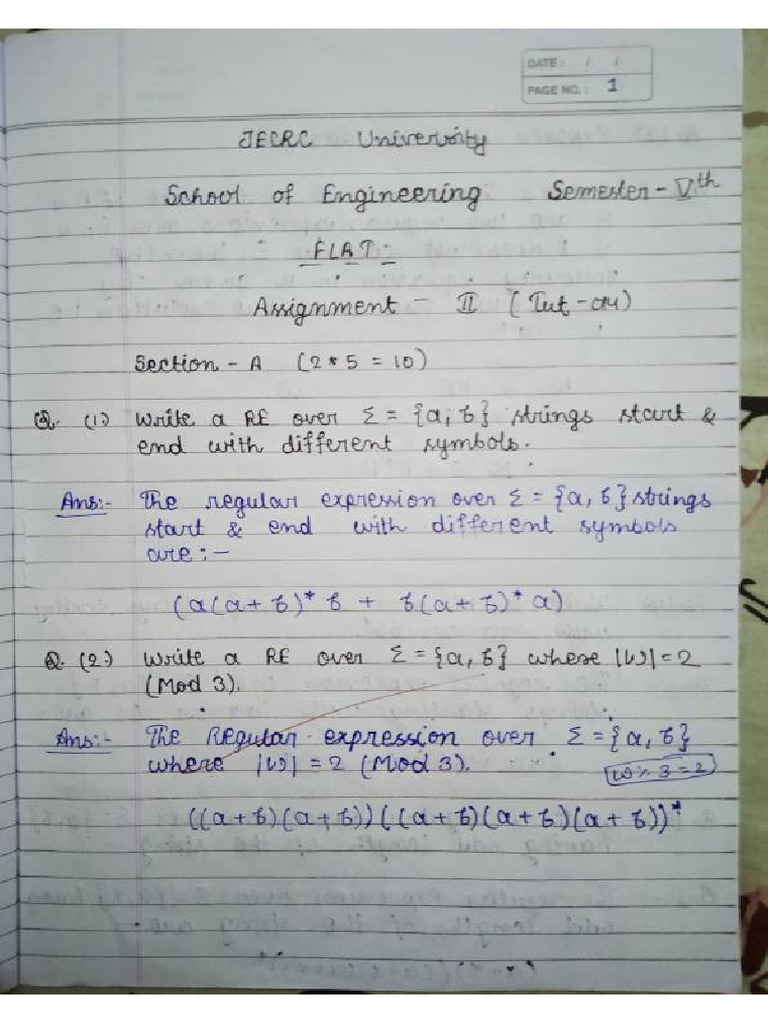 DATE: / /
PAGE NO.: 1
JECRC University
School of Engineering Semester - Vth
FLAT:
Assignment - II (Tut-04)
Section - A (2 * 5 = 10)
Q. (1) Write a RE over Σ = {a, b} strings start &
end with different symbols.
Ans:- The regular expression over Σ = {a, b} strings
start & end with different symbols
are :-
(a(a+b)* b + b(a+b)* a)
Q. (2.) Write a RE over Σ = {a, b} where |W| = 2
(Mod 3).
Ans:- The Regular expression over Σ = {a, b}
where |W| = 2 (Mod 3).
W % 3 = 2
((a+b)(a+b))((a+b)(a+b)(a+b))*